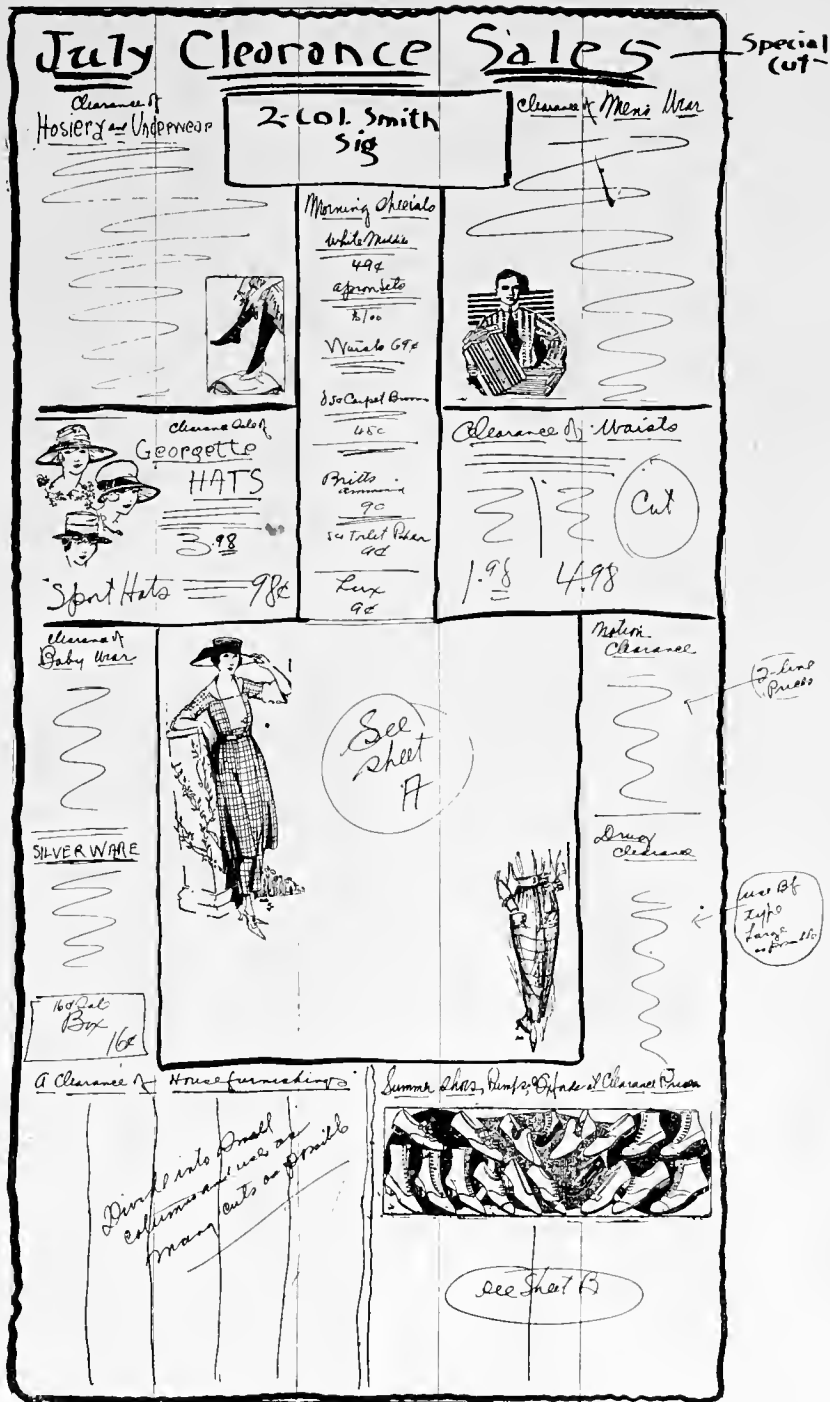 July Clearance Sales
Special
Cut
Clearance of
Hosiery and Underwear
2-Col. Smith
Sig
Clearance of Men's Wear
Morning Specials
White Middies
49¢
Apron Sets
$1.00
Waists 69¢
85c Carpet Brooms
45c
Britts
9c
9¢
Lux
9¢
Clearance Sale of
Georgette
HATS
3.98
Sport Hats 98¢
Clearance of Waists
Cut
1.98 4.98
Clearance of
Baby Wear
See
sheet
A
Notion
Clearance
2-line
Prices
SILVERWARE
Drug
Clearance
use Bf
type
Large
as possible
Box
16¢
A Clearance of Housefurnishings
Divide into small
columns and use as
many cuts as possible
Summer Shoes, Pumps, Oxfords at Clearance Prices
See Sheet B